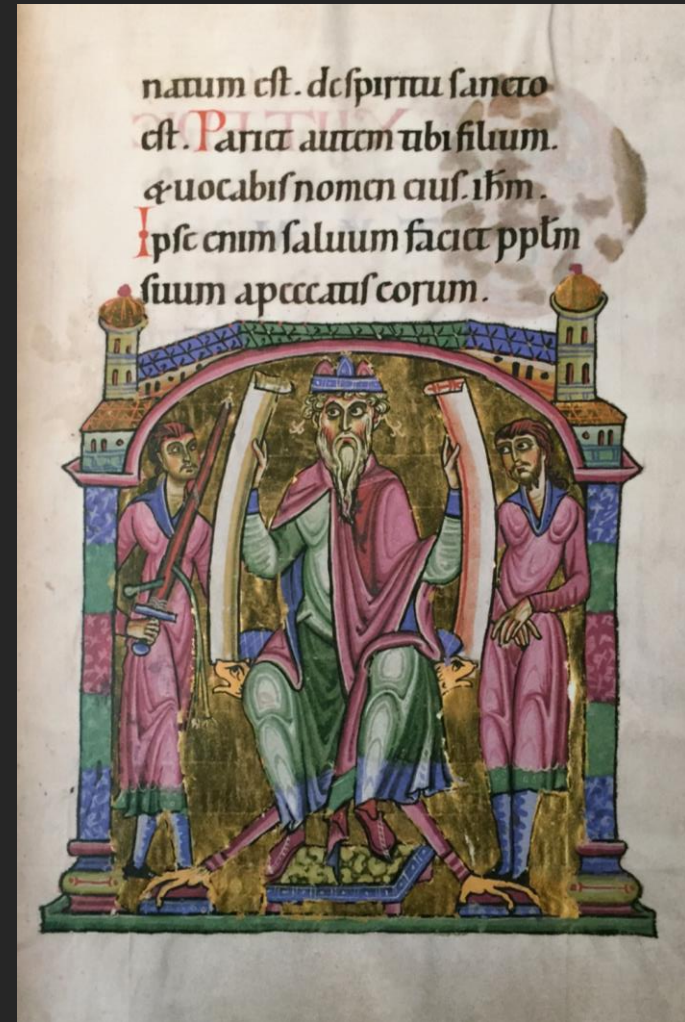 natum est. de spiritu sancto
est. Pariet autem tibi filium.
& uocabis nomen eius. ihm̅.
Ipse enim saluum faciet pplm̅
suum apeccatis eorum.